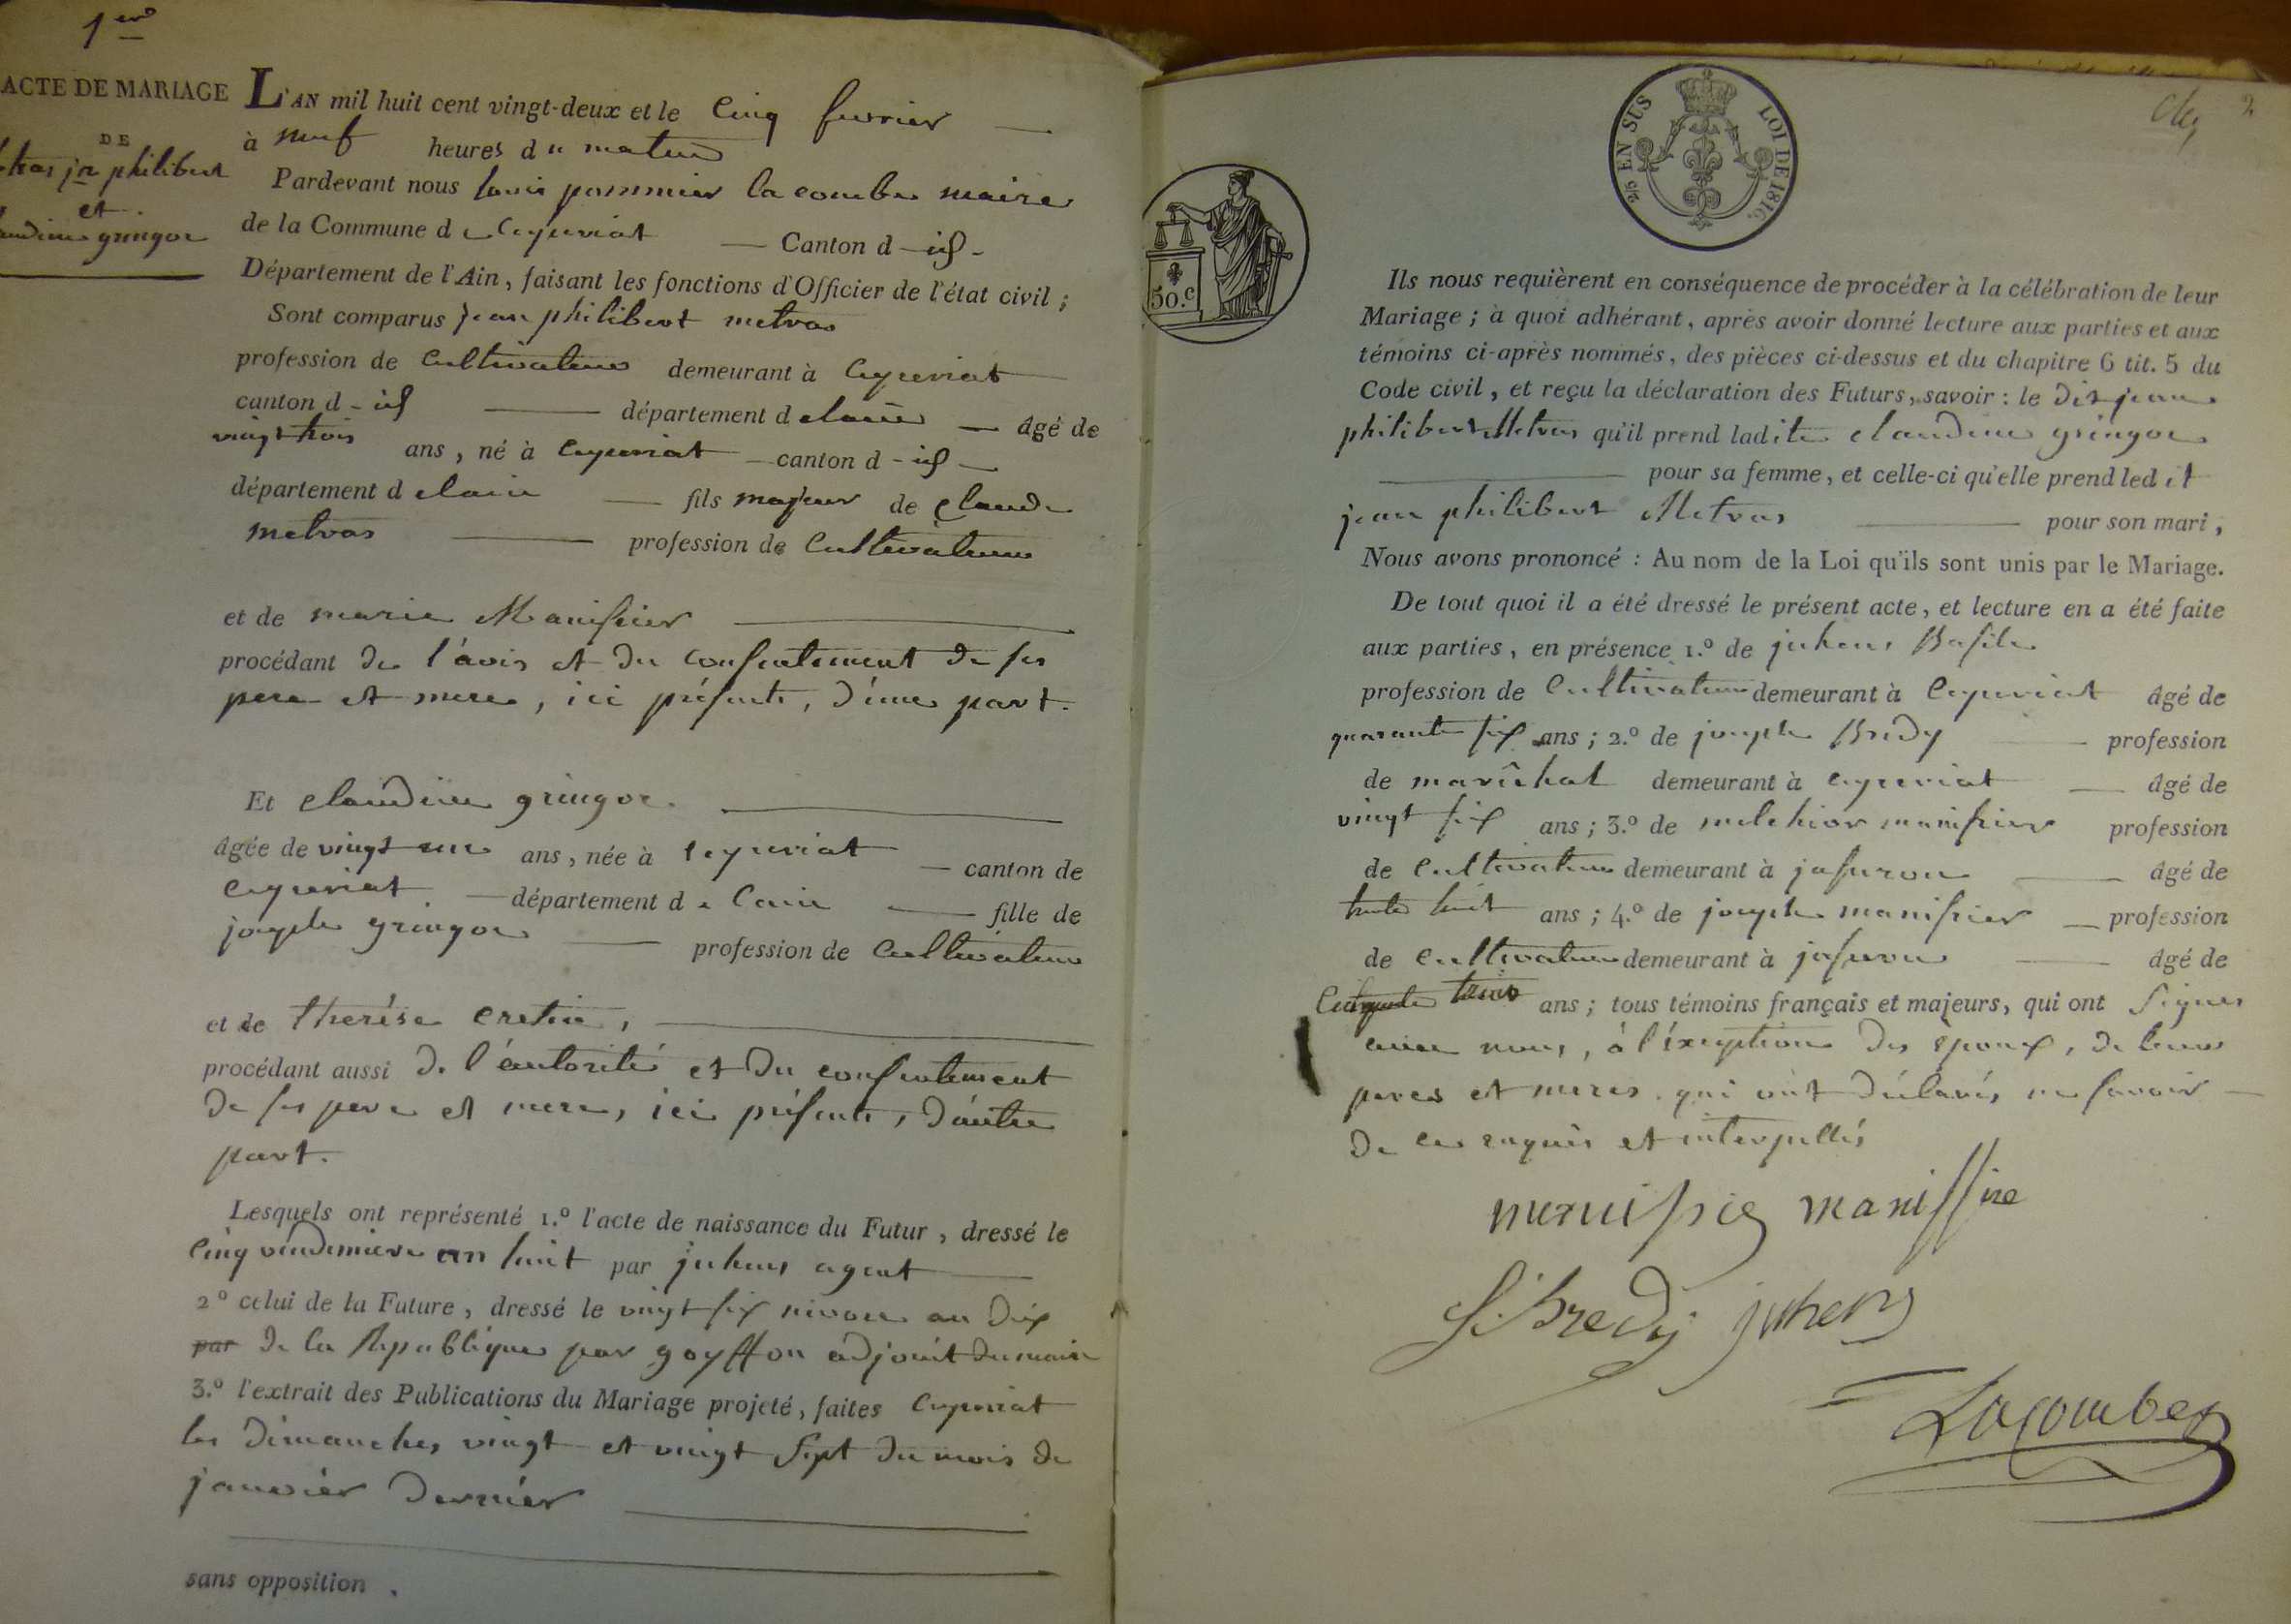 1er
ACTE DE MARIAGE
DE
tras jn philibert
et
audine gringoz
L'AN mil huit cent vingt-deux et le Cinq fevrier
à neuf heures du matin
Pardevant nous louis pommier la combe maire
de la Commune de Ceyzeriat Canton d id
Département de l'Ain, faisant les fonctions d'Officier de l'état civil ;
Sont comparus jean philibert metras
profession de Cultivateur demeurant à Ceyzeriat
canton d id département de lain âgé de
vingt trois ans, né à Ceyzeriat canton d id
département de lain fils majeur de claude
metras profession de Cultivateur
et de marie Manissier
procédant de l'avis et du consentement de ses
pere et mere, ici présents, d'une part.
Et claudine gringoz
âgée de vingt un ans, née à Ceyzeriat canton de
Ceyzeriat département de lain fille de
joseph gringoz profession de Cultivateur
et de therése cretin,
procédant aussi de l'autorité et du consentement
de ses pere et mere, ici présents, d'autre
part.
Lesquels ont représenté 1.º l'acte de naissance du Futur, dressé le
Cinq vendemiere an huit par juhens agent
2º celui de la Future, dressé le vingt six nivose an dix
par de la Republique par goyffon adjoint du maire
3.º l'extrait des Publications du Mariage projeté, faites Ceyzeriat
les dimanches vingt et vingt sept du mois de
janvier dernier
sans opposition.
2
50.c
2/5 EN SUS LOI DE 1816.
Ils nous requièrent en conséquence de procéder à la célébration de leur
Mariage ; à quoi adhérant, après avoir donné lecture aux parties et aux
témoins ci-après nommés, des pièces ci-dessus et du chapitre 6 tit. 5 du
Code civil, et reçu la déclaration des Futurs, savoir : le dit jean
philibert Metras qu'il prend ladite claudine gringoz
pour sa femme, et celle-ci qu'elle prend ledit
jean philibert Metras pour son mari,
Nous avons prononcé : Au nom de la Loi qu'ils sont unis par le Mariage.
De tout quoi il a été dressé le présent acte, et lecture en a été faite
aux parties, en présence 1.º de juhens Basile
profession de Cultivateur demeurant à Ceyzeriat âgé de
quarante six ans ; 2.º de joseph Bredy profession
de maréchal demeurant à Ceyzeriat âgé de
vingt six ans ; 3.º de melchior manissier profession
de Cultivateur demeurant à jasseron âgé de
trente huit ans ; 4.º de joseph manissier profession
de Cultivateur demeurant à jasseron âgé de
Cinquante trois ans ; tous témoins français et majeurs, qui ont signés
avec nous, à l'exception des époux, de leurs
peres et meres qui ont déclarés ne savoir
de ce requis et interpellés
manissie
J. bredy juhens
Lacombe